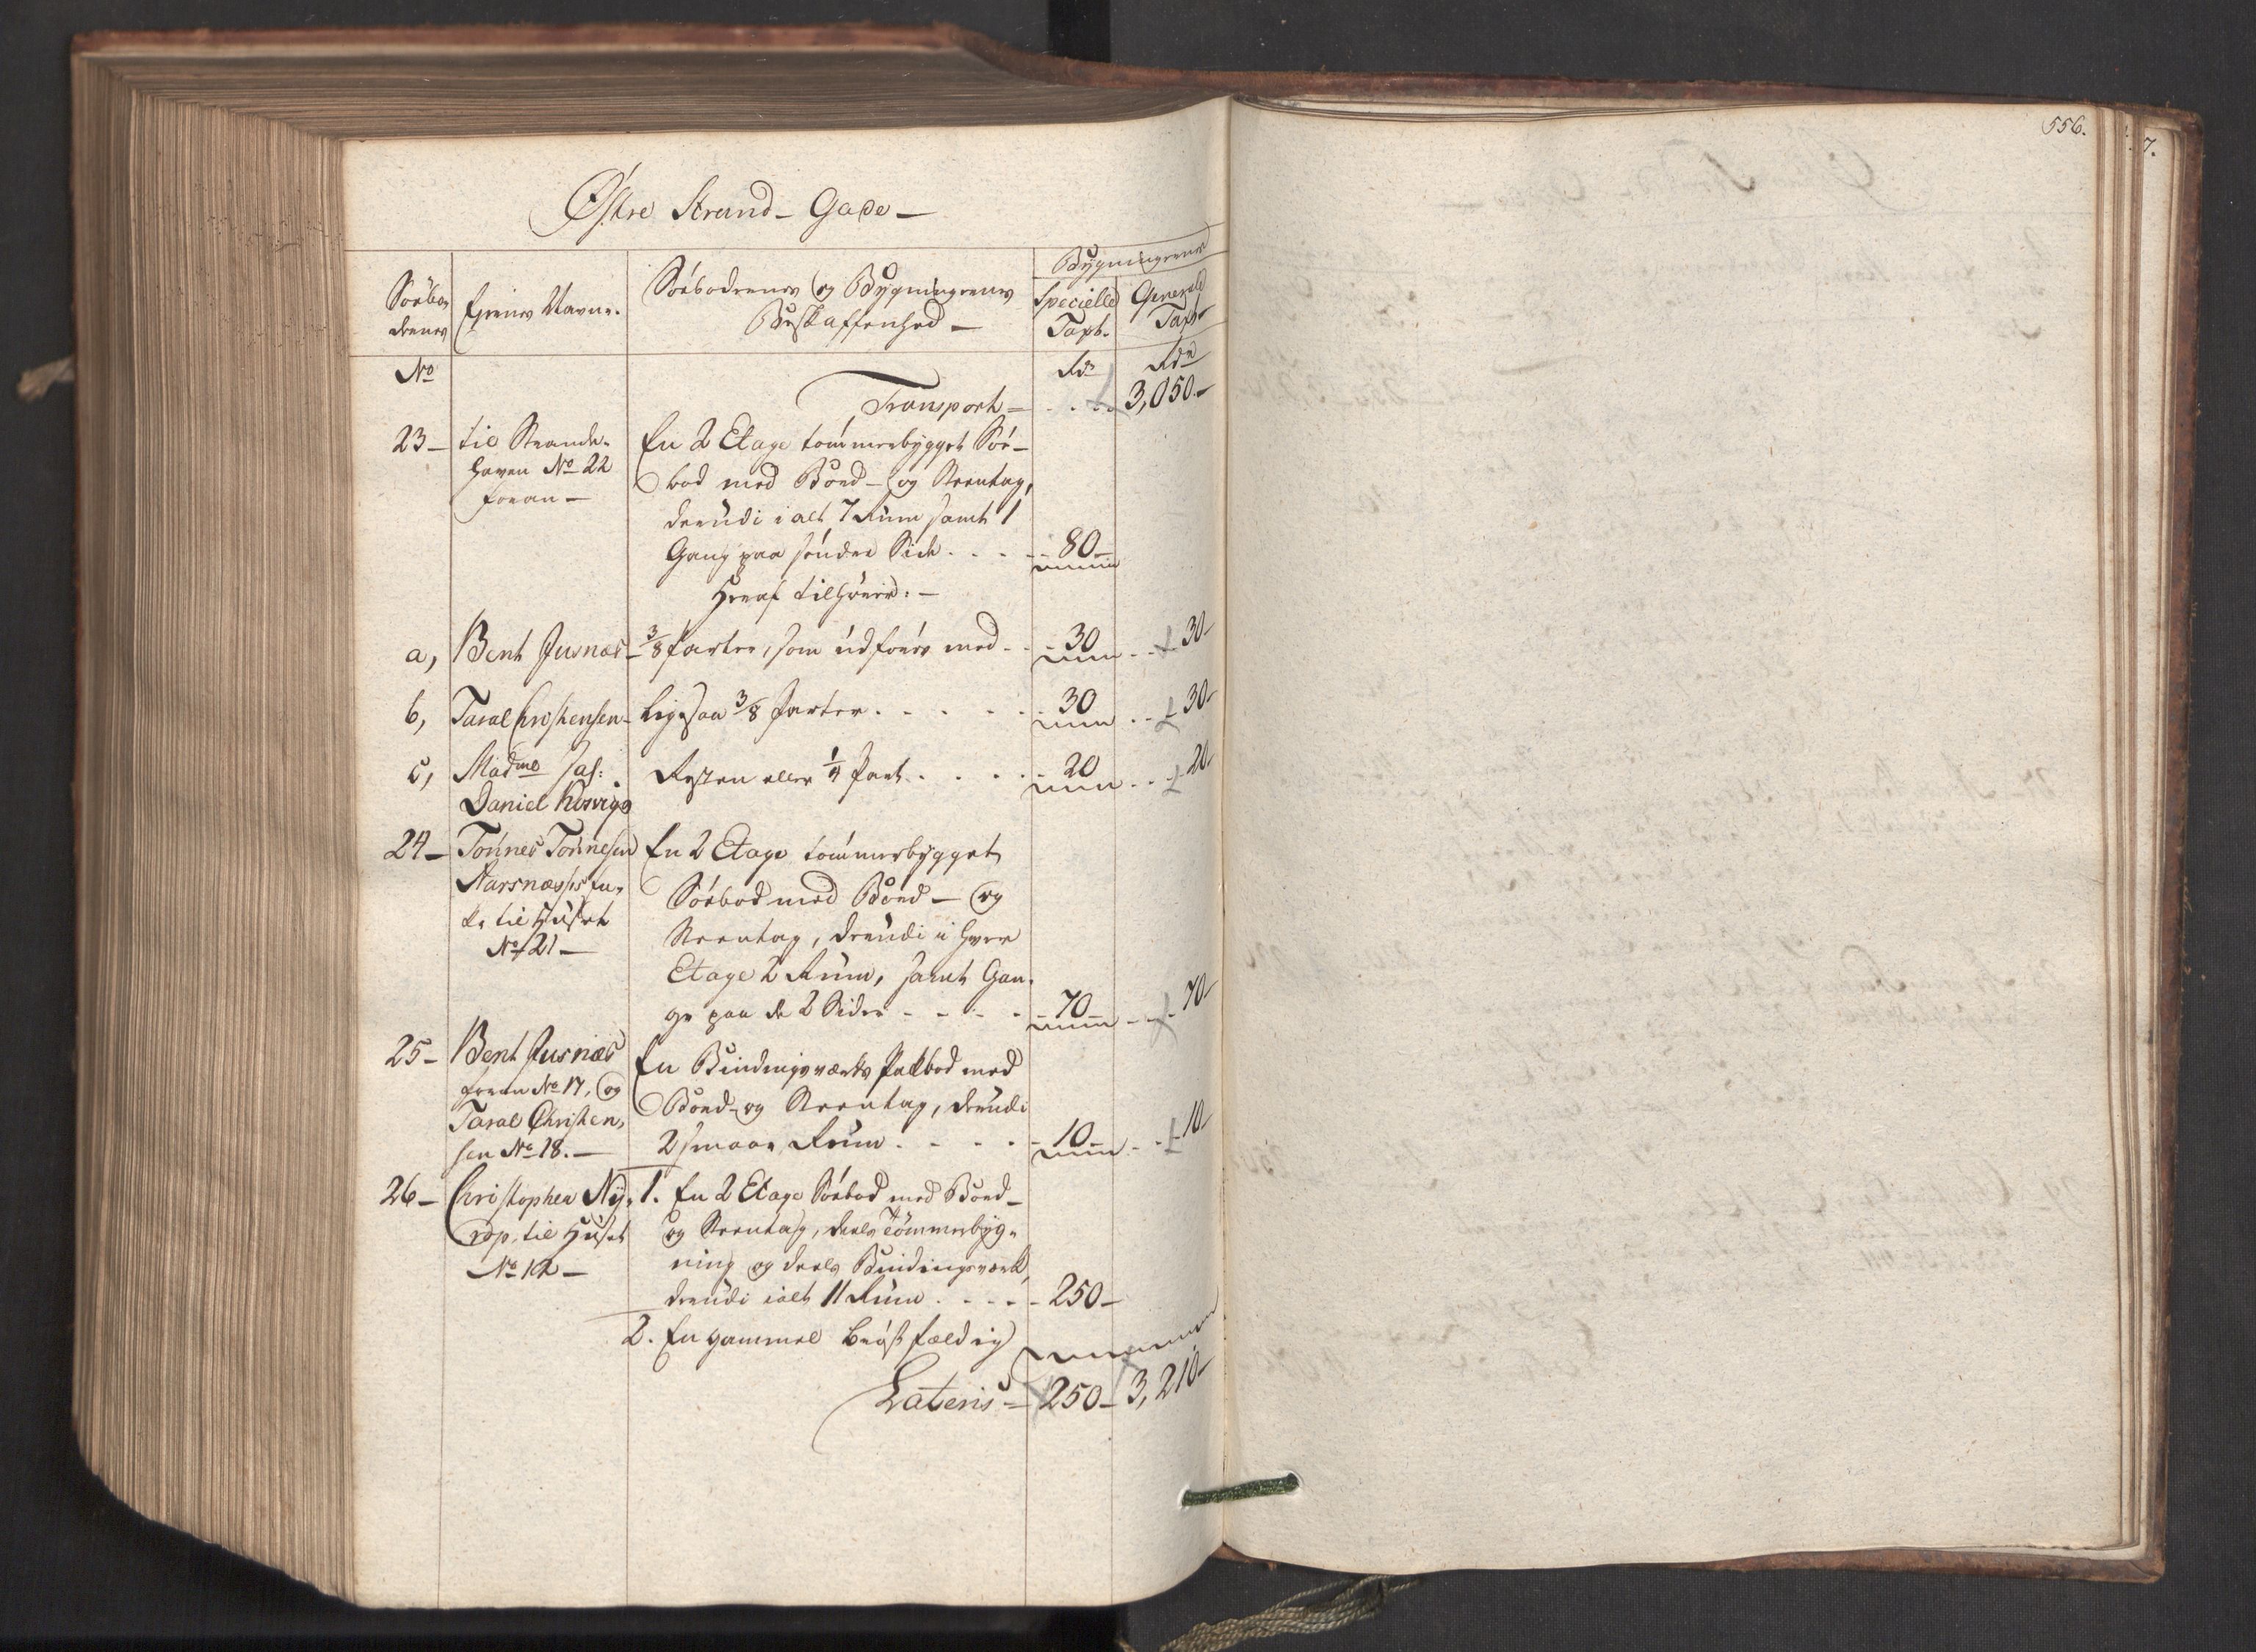 556.
7.
Østre Strand- Gade-
Söebo-
dernes
Eyernes Navne.
Söebodernes og Bygningernes
Beskaffenhed-
Bygningernes
Specielle
Taxt.
Generale
Taxt
No
Rdr
Rdr
Transport= . . . 3,050.-
23- til Strande-
haven No 22
foran-
En 2 Etage tömmerbygget Söe-
bod med Bord- og Steentag,
derudi i alt 7 Rum samt 1
Gang paa söndre Side . . . - 80-
Heraf tilhörer:-
a, Bent Jusnæs- 3/8 Parter, som udföres med . . - 30 . . 30-
b, Taral Christensen- Ligesaa 3/8 Parter . . . . . 30 . . 30-
c, Madme Sal:
Daniel Kosviga
Resten eller 1/4 Part . . . . - 20 . . 20-
24- Tönnes Tönnesen
Aarsnæs's En-
ke til Huset
No 21-
En 2 Etage tömmerbygget
Söebod med Bord- og
Steentag, derudi i hver
Etage 2 Rum, samt Gan-
ge paa de 2 Sider - - - . - 70- - . 70-
25- Bent Jusnæs
foran No 17, og
Taral Christen-
sen No 18.-
En Bindingsværks Pakbod med
Bord- og Steentag, derudi
2 smaae Rum . . . . - 10- . . 10-
26- Christopher Ny-
rop, til Huset
No 12-
1. En 2 Etage Söebod med Bord-
og Steentag, deels Tömmerbyg-
ning og deels Bindingsværk,
derudi ialt 11 Rum . . . . - 250-
2. En gammel bröstfældig
Lateris= 250- 3,210-